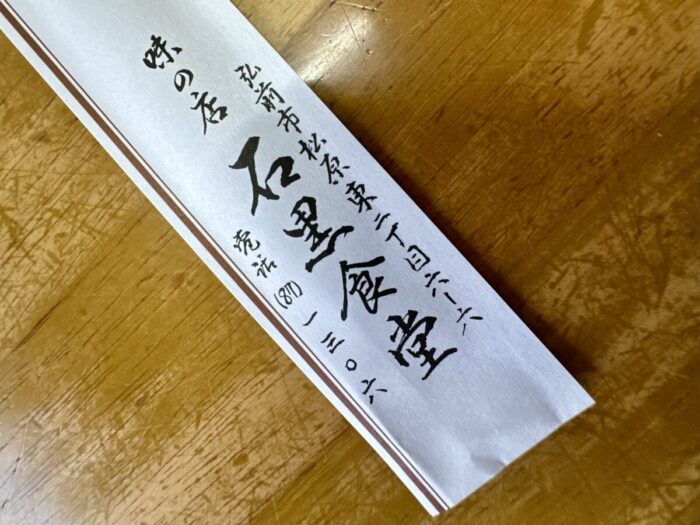 弘前市松原東二丁目六ー六
味の店
石黒食堂
電話(87)一三〇六